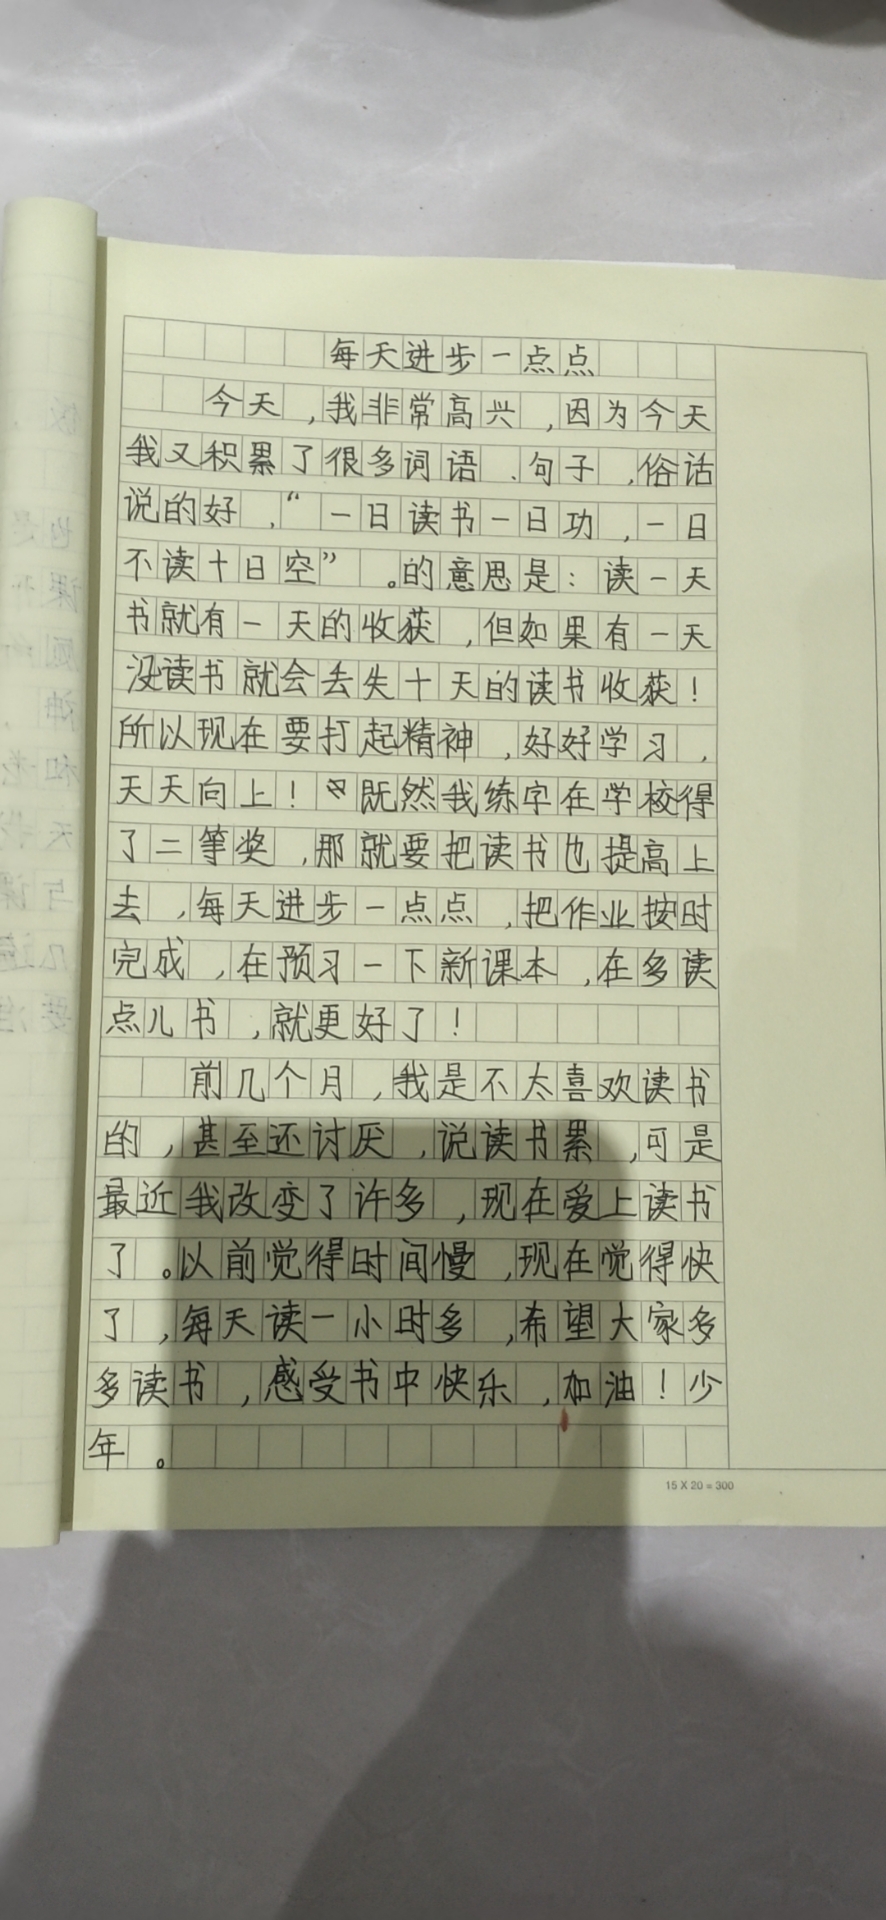 每天进步一点点
今天,我非常高兴,因为今天
我又积累了很多词语、句子,俗话
说的好,“一日读书一日功,一日
不读十日空”。的意思是:读一天
书就有一天的收获,但如果有一天
没读书就会丢失十天的读书收获!
所以现在要打起精神,好好学习,
天天向上!既然我练字在学校得
了二等奖,那就要把读书也提高上
去,每天进步一点点,把作业按时
完成,在预习一下新课本,在多读
点儿书,就更好了!
前几个月,我是不太喜欢读书
的,甚至还讨厌,说读书累,可是
最近我改变了许多,现在爱上读书
了。以前觉得时间慢,现在觉得快
了,每天读一小时多,希望大家多
多读书,感受书中快乐,加油!少
年。
15 X 20 = 300